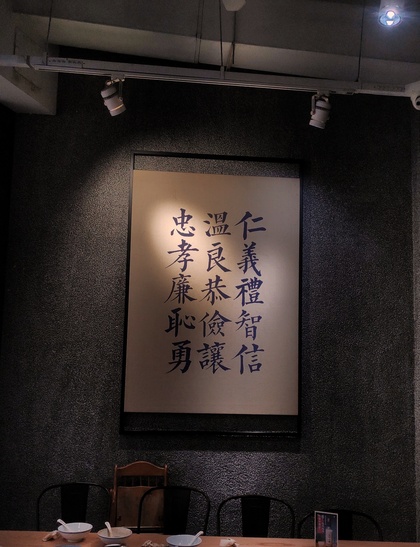 仁義禮智信
溫良恭儉讓
忠孝廉恥勇